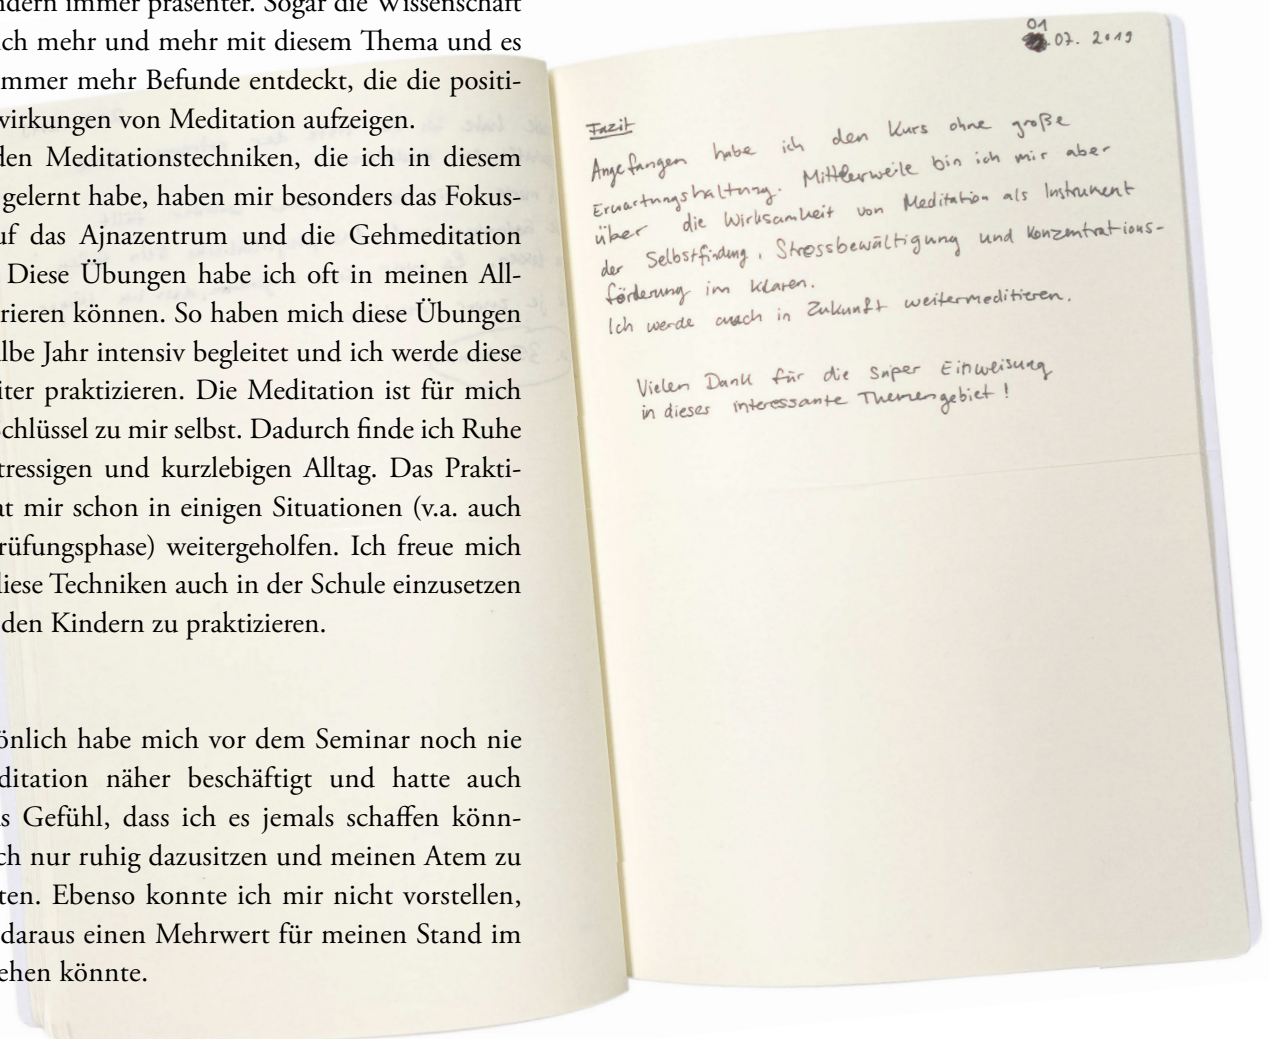 ndern immer präsenter. Sogar die Wissenschaft
ich mehr und mehr mit diesem Thema und es
immer mehr Befunde entdeckt, die die positi-
wirkungen von Meditation aufzeigen.
den Meditationstechniken, die ich in diesem
gelernt habe, haben mir besonders das Fokus-
uf das Ajnazentrum und die Gehmeditation
Diese Übungen habe ich oft in meinen All-
rieren können. So haben mich diese Übungen
albe Jahr intensiv begleitet und ich werde diese
iter praktizieren. Die Meditation ist für mich
Schlüssel zu mir selbst. Dadurch finde ich Ruhe
tressigen und kurzlebigen Alltag. Das Prakti-
at mir schon in einigen Situationen (v.a. auch
rüfungsphase) weitergeholfen. Ich freue mich
diese Techniken auch in der Schule einzusetzen
den Kindern zu praktizieren.
önlich habe mich vor dem Seminar noch nie
ditation näher beschäftigt und hatte auch
s Gefühl, dass ich es jemals schaffen könn-
ch nur ruhig dazusitzen und meinen Atem zu
ten. Ebenso konnte ich mir nicht vorstellen,
daraus einen Mehrwert für meinen Stand im
ehen könnte.
01
.07. 2019
Fazit
Angefangen habe ich den Kurs ohne große
Erwartungshaltung. Mittlerweile bin ich mir aber
über die Wirksamkeit von Meditation als Instrument
der Selbstfindung, Stressbewältigung und Konzentrations-
förderung im Klaren.
Ich werde auch in Zukunft weitermeditieren.
Vielen Dank für die super Einweisung
in dieses interessante Themengebiet!